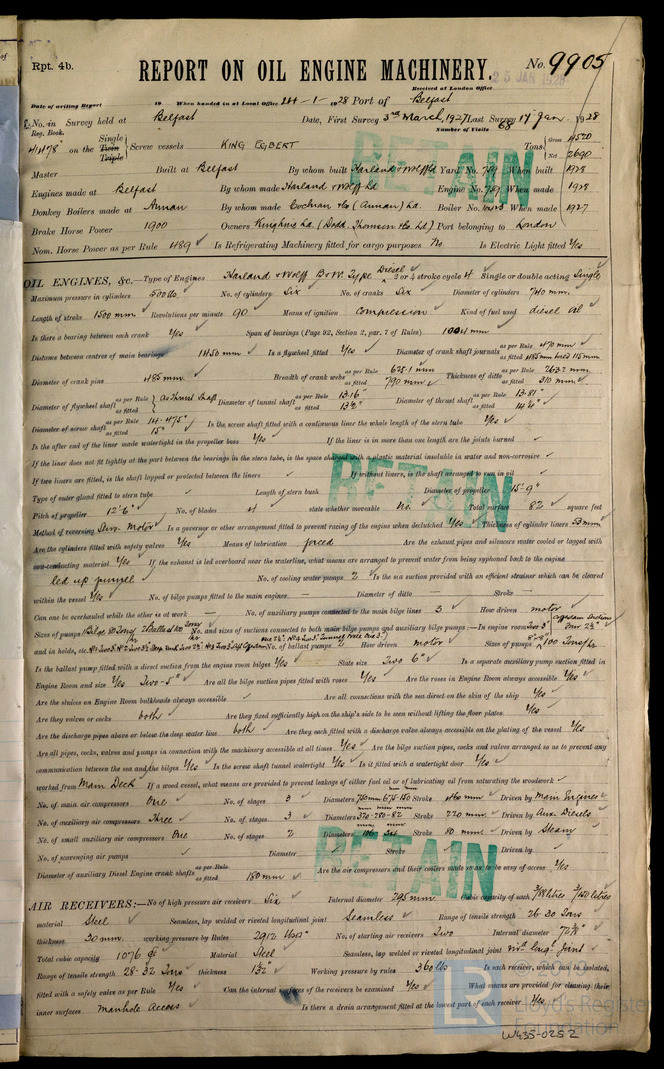 Rpt. 4b.
REPORT ON OIL ENGINE MACHINERY.
No. 9905
Received at London Office 25 JAN 1928
Date of writing Report 19 When handed in at Local Office 24-1-1928 Port of Belfast
No. in Survey held at Belfast Date, First Survey 3rd March, 1927 Last Survey 17 Jan 1928
Reg. Book. Number of Visits 68
on the Single Twin Triple Screw vessels KING EGBERT Tons Gross 4520 Net 2690
Master Built at Belfast By whom built Harland & Wolff Ld Yard No. 789 When built 1928
Engines made at Belfast By whom made Harland & Wolff Ld Engine No. 789 When made 1928
Donkey Boilers made at Annan By whom made Cochran & Co (Annan) Ld. Boiler No. When made 1927
Brake Horse Power 1900 Owners (Dodd, Thomson & Co Ld) Port belonging to London
Nom. Horse Power as per Rule 489 Is Refrigerating Machinery fitted for cargo purposes No Is Electric Light fitted Yes
OIL ENGINES, &c.—Type of Engines Harland & Wolff B & W. Type Diesel 2 or 4 stroke cycle 4 Single or double acting Single
Maximum pressure in cylinders 500 lbs. No. of cylinders Six No. of cranks Six Diameter of cylinders 740 mm.
Length of stroke 1500 mm. Revolutions per minute 90 Means of ignition compression Kind of fuel used diesel oil
Is there a bearing between each crank Yes Span of bearings (Page 92, Section 2, par. 7 of Rules) 1004 mm
Distance between centres of main bearings 1450 mm Is a flywheel fitted Yes Diameter of crank shaft journals as per Rule 470 mm as fitted 485 mm bored 115 mm
Diameter of crank pins 485 mm. Breadth of crank webs as per Rule 625.1 mm as fitted 790 mm Thickness of ditto as per Rule 263.2 mm as fitted 310 mm.
Diameter of flywheel shaft as per Rule as fitted as Thrust Shaft Diameter of tunnel shaft as per Rule 13.16" as fitted Diameter of thrust shaft as per Rule 13.81" as fitted
Diameter of screw shaft as per Rule 14.475" as fitted 15" Is the screw shaft fitted with a continuous liner the whole length of the stern tube Yes
Is the after end of the liner made watertight in the propeller boss Yes If the liner is in more than one length are the joints burned
If the liner does not fit tightly at the part between the bearings in the stern tube, is the space charged with a plastic material insoluble in water and non-corrosive
If two liners are fitted, is the shaft lapped or protected between the liners If without liners, is the shaft arranged to run in oil
Type of outer gland fitted to stern tube Length of stern bush Diameter of propeller 15'-9"
Pitch of propeller 12'6" No. of blades 4 state whether moveable No. Total surface 82 square feet
Method of reversing Servo-Motor Is a governor or other arrangement fitted to prevent racing of the engine when declutched Yes Thickness of cylinder liners 53 mm
Are the cylinders fitted with safety valves Yes Means of lubrication forced Are the exhaust pipes and silencers water cooled or lagged with
non-conducting material Yes If the exhaust is led overboard near the waterline, what means are arranged to prevent water from being syphoned back to the engine
led up funnel No. of cooling water pumps 2 Is the sea suction provided with an efficient strainer which can be cleared
within the vessel Yes No. of bilge pumps fitted to the main engines — Diameter of ditto — Stroke —
Can one be overhauled while the other is at work — No. of auxiliary pumps connected to the main bilge lines 3 How driven motor
Sizes of pumps No. and sizes of suctions connected to both main bilge pumps and auxiliary bilge pumps:—In engine room
and in holds, etc. No. of ballast pumps How driven motor Sizes of pumps
Is the ballast pump fitted with a direct suction from the engine room bilges Yes State size Two 6" Is a separate auxiliary pump suction fitted in
Engine Room and size Yes Two-5" Are all the bilge suction pipes fitted with roses Yes Are the roses in Engine Room always accessible Yes
Are the sluices on Engine Room bulkheads always accessible Are all connections with the sea direct on the skin of the ship Yes
Are they valves or cocks both Are they fixed sufficiently high on the ship's side to be seen without lifting the floor plates Yes
Are the discharge pipes above or below the deep water line both Are they each fitted with a discharge valve always accessible on the plating of the vessel Yes
Are all pipes, cocks, valves and pumps in connection with the machinery accessible at all times Yes Are the bilge suction pipes, cocks and valves arranged so as to prevent any
communication between the sea and the bilges Yes Is the screw shaft tunnel watertight Yes Is it fitted with a watertight door Yes
worked from Main Deck If a wood vessel, what means are provided to prevent leakage of either fuel oil or of lubricating oil from saturating the woodwork
No. of main air compressors One No. of stages 3 Diameters Stroke 460 mm Driven by Main Engines
No. of auxiliary air compressors Three No. of stages 3 Diameters 370-280-82 Stroke 220 mm. Driven by Aux. Diesels
No. of small auxiliary air compressors One No. of stages 2 Diameters Stroke 80 mm Driven by Steam
No. of scavenging air pumps Diameter Stroke Driven by
Diameter of auxiliary Diesel Engine crank shafts as per Rule as fitted 180 mm Are the air compressors and their coolers made so as to be easy of access Yes
AIR RECEIVERS:—No of high pressure air receivers Six Internal diameter 295 mm Cubic capacity of each
material Steel Seamless, lap welded or riveted longitudinal joint Seamless Range of tensile strength 26-30 Tons
thickness 30 mm. working pressure by Rules No. of starting air receivers Two Internal diameter
Total cubic capacity 1076 Material Steel Seamless, lap welded or riveted longitudinal joint
Range of tensile strength 28-32 Tons thickness Working pressure by rules 360 lbs Is each receiver, which can be isolated,
fitted with a safety valve as per Rule Yes Can the internal surfaces of the receivers be examined Yes What means are provided for cleaning their
inner surfaces Manhole Access Is there a drain arrangement fitted at the lowest part of each receiver Yes
RETAIN
RETAIN
RETAIN
LR
Lloyd's Register
Foundation
W435-0252